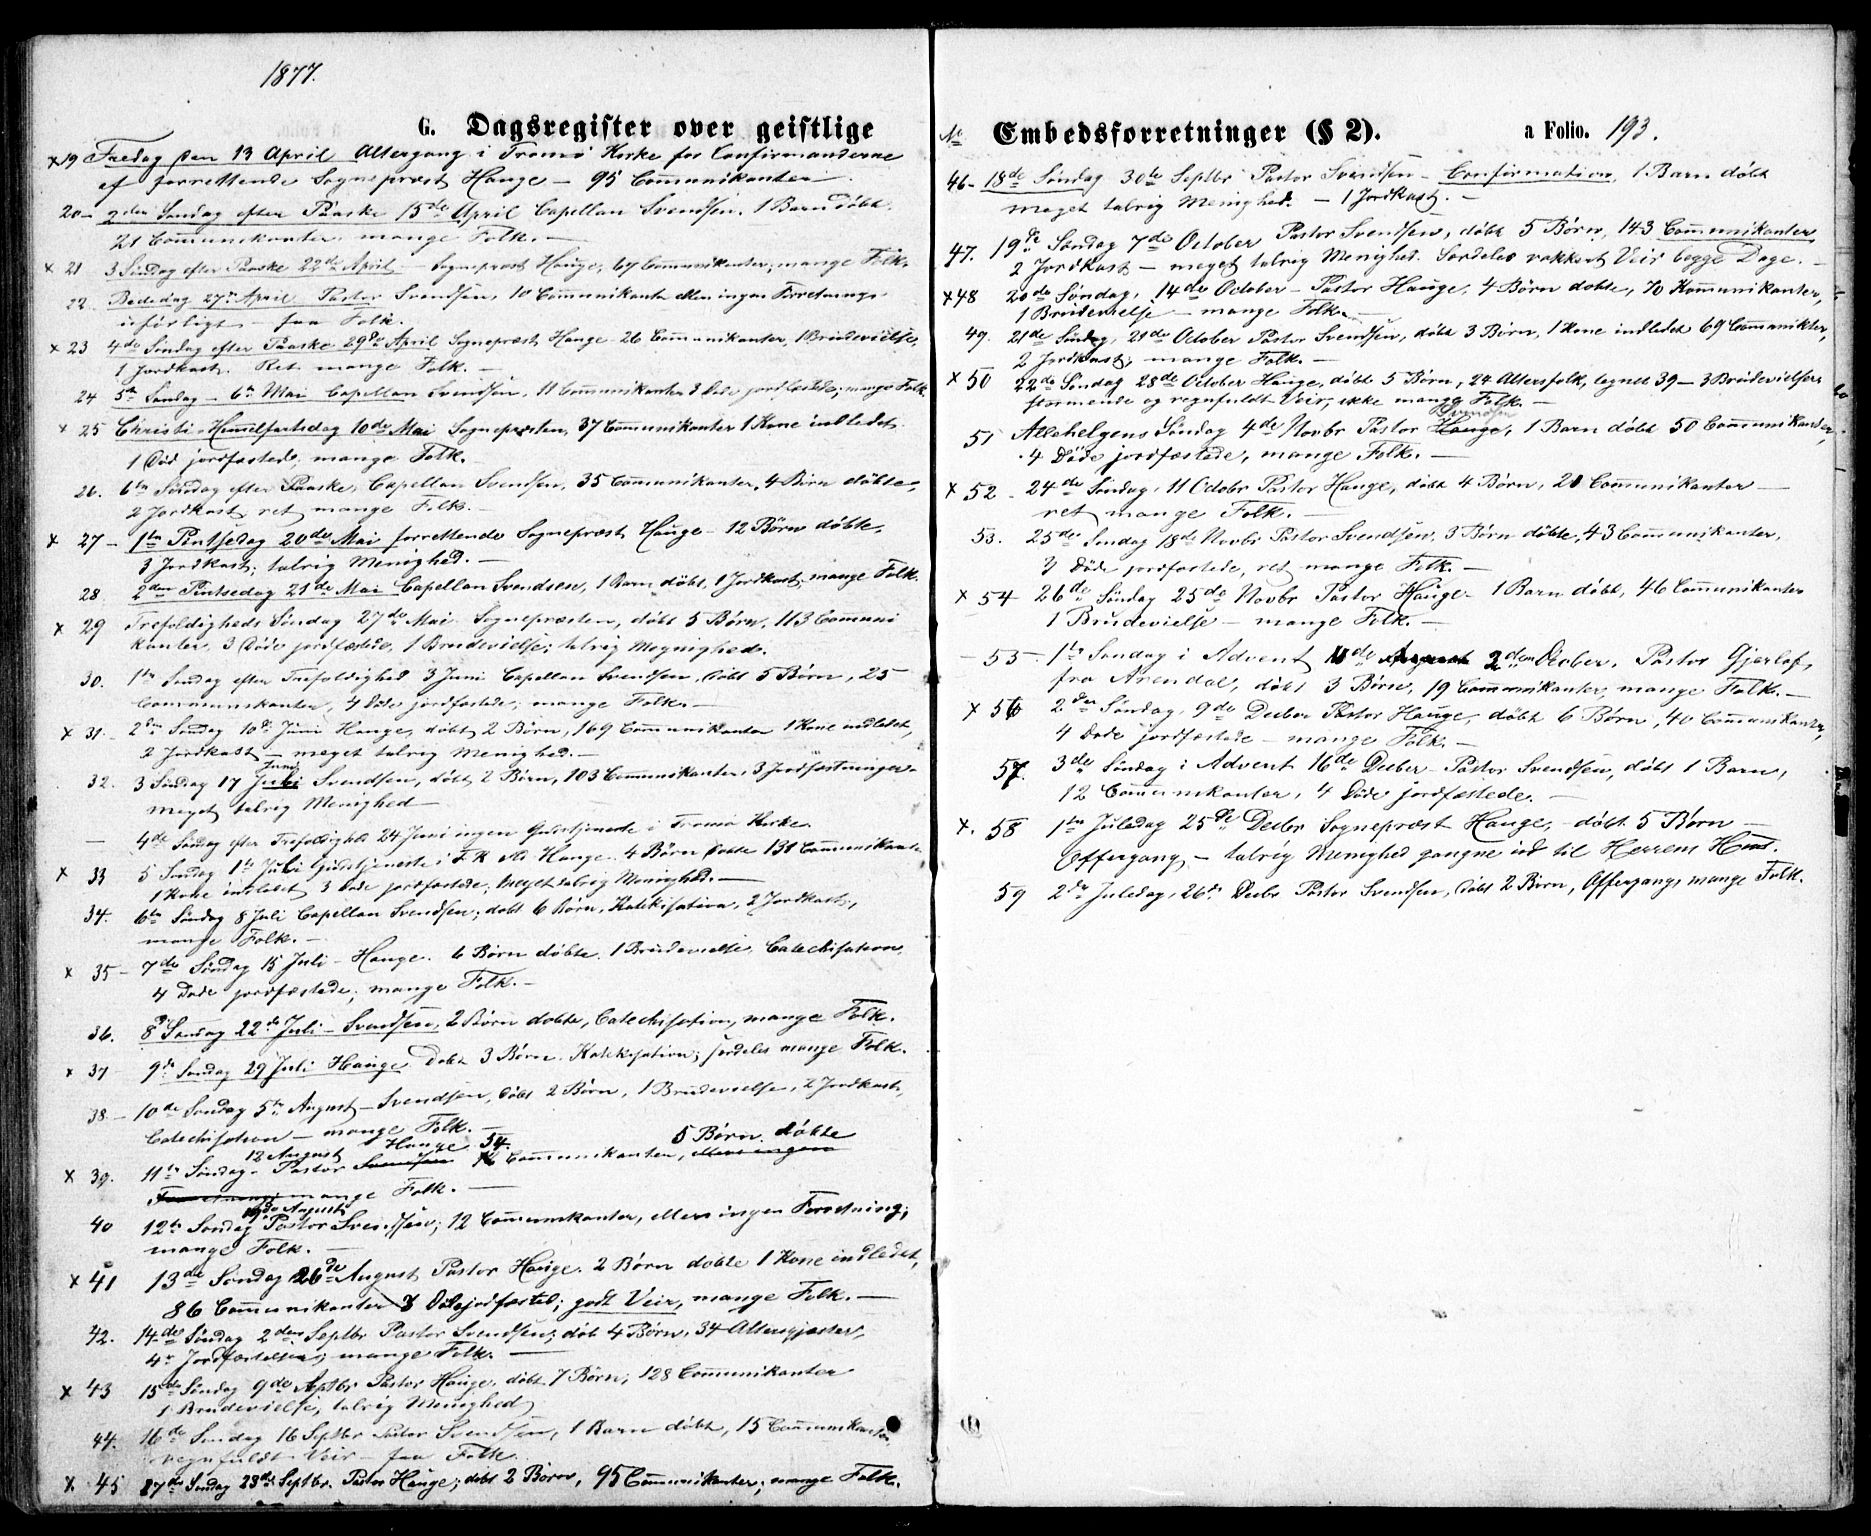 1877.
G. Dagsregister over geistlige
x 19 Fredag den 13 April Altergang i Tromø Kirke for Confirmanderne
af forrettende Sognepræst Hauge – 95 Communikanter.
20 – 2den Søndag efter Paaske 15de April Capellan Svendsen. 1 Barn døbt.
21 Communikanter. mange Folk. –
x 21 3 Søndag efter Paaske 22de April – Sognepræst Hauge; 67 Communikanter; mange Folk.
22. Bededag 27de April Pastor Svendsen, 10 Communikanter ellers ingen Forretninger
– faa Folk.
x 23 4de Søndag efter Paaske 29de April Sognepræst Hauge 26 Communikanter, 1 Brudevielse,
1 Jordkast. Ret mange Folk. –
24 5te Søndag – 6te Mai Capellan Svendsen, 11 Communikanter 3 Døde jordfæstede; mange Folk
x 25 Christi Himmelfartsdag 10de Mai Sognepræsten, 37 Communikanter 1 Kone indledet.
1 Død jordfæstede, mange Folk.
26. 6te Søndag efter Paaske, Capellan Svendsen, 35 Communikanter, 4 Børn døbte,
2 Jordkast ret mange Folk. –
x 27 – 1ste Pintsedag 20de Mai forrettende Sognepræst Hauge – 12 Børn døbte,
3 Jordkast; talrig Menighed. –
28 2den Pintsedag 21de Mai Capellan Svendsen, 1 Barn døbt, 1 Jordkast; mange Folk.
x 29 Trefoldigheds Søndag 27de Mai Sognepræsten, døbt 5 Børn, 113 Communi
kanter, 3 Døde jordfæstede, 1 Brudevielse; talrig Menighed.
30. 1ste Søndag efter Trefoldighed 3 Juni Capellan Svendsen, døbt 5 Børn, 25
Communikanter, 4 Døde jordfæstede; mange Folk. –
x 31 – 2den Søndag 10de Juni Hauge, døbt 2 Børn, 169 Communikanter 1 Kone indledet,
2 Jordkast – meget talrig Menighed. –
32. 3 Søndag 17 Juli Juni Svendsen, døbt 2 Børn, 103 Communikanter, 3 Jordfæstninger.
meget talrig Menighed –
– 4de Søndag efter Trefoldighed 24 Juni ingen Gudstjeneste i Tromø Kirke.
x 33 5 Søndag 1ste Juli Gudstjeneste i T. K ved Hauge. 4 Børn døbte 131 Communikanter
1 Kone indledet 3 Døde jordfæstede; meget talrig Menighed. –
34. 6te Søndag 8 Juli Capellan Svendsen; døbt 6 Børn, Katekisation, 2 Jordkast,
mange Folk. –
x 35 – 7de Søndag 15 Juli – Hauge. 6 Børn døbte. 1 Brudevielse, Catechisation,
4 Døde jordfæstede; mange Folk. –
36. 8de Søndag 22de Juli – Svendsen, 2 Børn døbte, Catechisation, mange Folk.
x 37 9de Søndag 29 Juli Hauge døbt 3 Børn. Katekisation; særdeles mange Folk.
38 – 10de Søndag 5te August – Svendsen, døbt 2 Børn, 1 Brudevielse, 2 Jordkast,
Catechisation – mange Folk. –
12 August Hauge 34. 5 Børn døbte
x 39. 11te Søndag. Pastor Svendsen Communikanter, ellers ingen
Forretning; mange Folk. –
19de August
40 12te Søndag Pastor Svendsen; 12 Communikanter, ellers ingen Forretning;
mange Folk. –
x 41 13de Søndag 26de August Pastor Hauge. 2 Børn døbte 1 Kone indledet,
86 Communikanter 3 Døde jordfæsted; godt Veir, mange Folk. –
42. 14de Søndag 2den Septbr Pastor Svendsen; døbt 4 Børn, 34 Altergjæster,
4 Jordfæstelser; mange Folk. –
x 43 15de Søndag 9de Sptbr Pastor Hauge. døbt 7 Børn, 128 Communikanter
1 Brudevielse, talrig Menighed
44. 16de Søndag 16 Septbr Pastor Svendsen, 1 Barn døbt, 15 Communikanter,
regnfuldt Veir – faa Folk.
x 45 17de Søndag 23de Septbr. Pastor Hauge; døbt 2 Børn, 95 Communikanter; mange Folk.
No Embedsforretninger (§ 2). a Folio. 193.
46 – 18de Søndag 30te Septbr Pastor Svendsen – Confirmation, 1 Barn døbt
meget talrig Menighed. – 1 Jordkast. –
47. 19de Søndag 7de October Pastor Svendsen, døbt 5 Børn, 143 Communikanter
2 Jordkast – meget talrig Menighed. Særdeles vakkert Veir begge Dage. –
x 48 20de Søndag, 14de October – Pastor Hauge, 4 Børn døbte, 70 Kommunikanter,
1 Brudevielse – mange Folk. –
49. 21de Søndag, 21de October Pastor Svendsen, døbt 3 Børn, 1 Kone indledet 69 Communikter,
2 Jordkast; mange Folk. –
x 50 22de Søndag 28de October Hauge, døbt 5 Børn, 24 Altersfolk, tegnet 39 – 3 Brudevielser
stormende og regnfuldt Veir; ikke mange Folk. –
Svendsen
51 Allehelgens Søndag 4de Novbr Pastor Hauge, 1 Barn døbt 50 Communikanter,
4 Døde jordfæstede, mange Folk. –
x 52 – 24de Søndag, 11 Octobr Pastor Hauge, døbt 4 Børn, 21 Communikanter –
ret mange Folk. –
53. 25de Søndag 18de Novbr Pastor Svendsen, 3 Børn døbte, 43 Communikanter,
3 Døde jordfæstede, ret mange Folk. –
x 54 26de Søndag 25de Novbr Pastor Hauge – 1 Barn døbt, 46 Communikanter
1 Brudevielse – mange Folk. –
– 55. 1ste Søndag i Advent 2den Pastor Gjerløf,
fra Arendal, døbt 3 Børn, 19 Communikanter, mange Folk. –
x 56 2den Søndag, 9de Decbr Pastor Hauge, døbt 6 Børn, 40 Communikanter,
4 Døde jordfæstede – mange Folk. –
57. 3de Søndag i Advent 16de Decber – Pastor Svendsen, døbt 1 Barn,
12 Communikanter, 4 Døde jordfæstede. –
x. 58 1ste Juledag 25de Decbr Sognepræst Hauge, – døbt 5 Børn –
Offergang – talrig Menighed gangne ind til Herrens Huus.
59 2den Juledag, 26de Decbr Pastor Svendsen, døbt 2 Børn, Offergang, mange Folk.